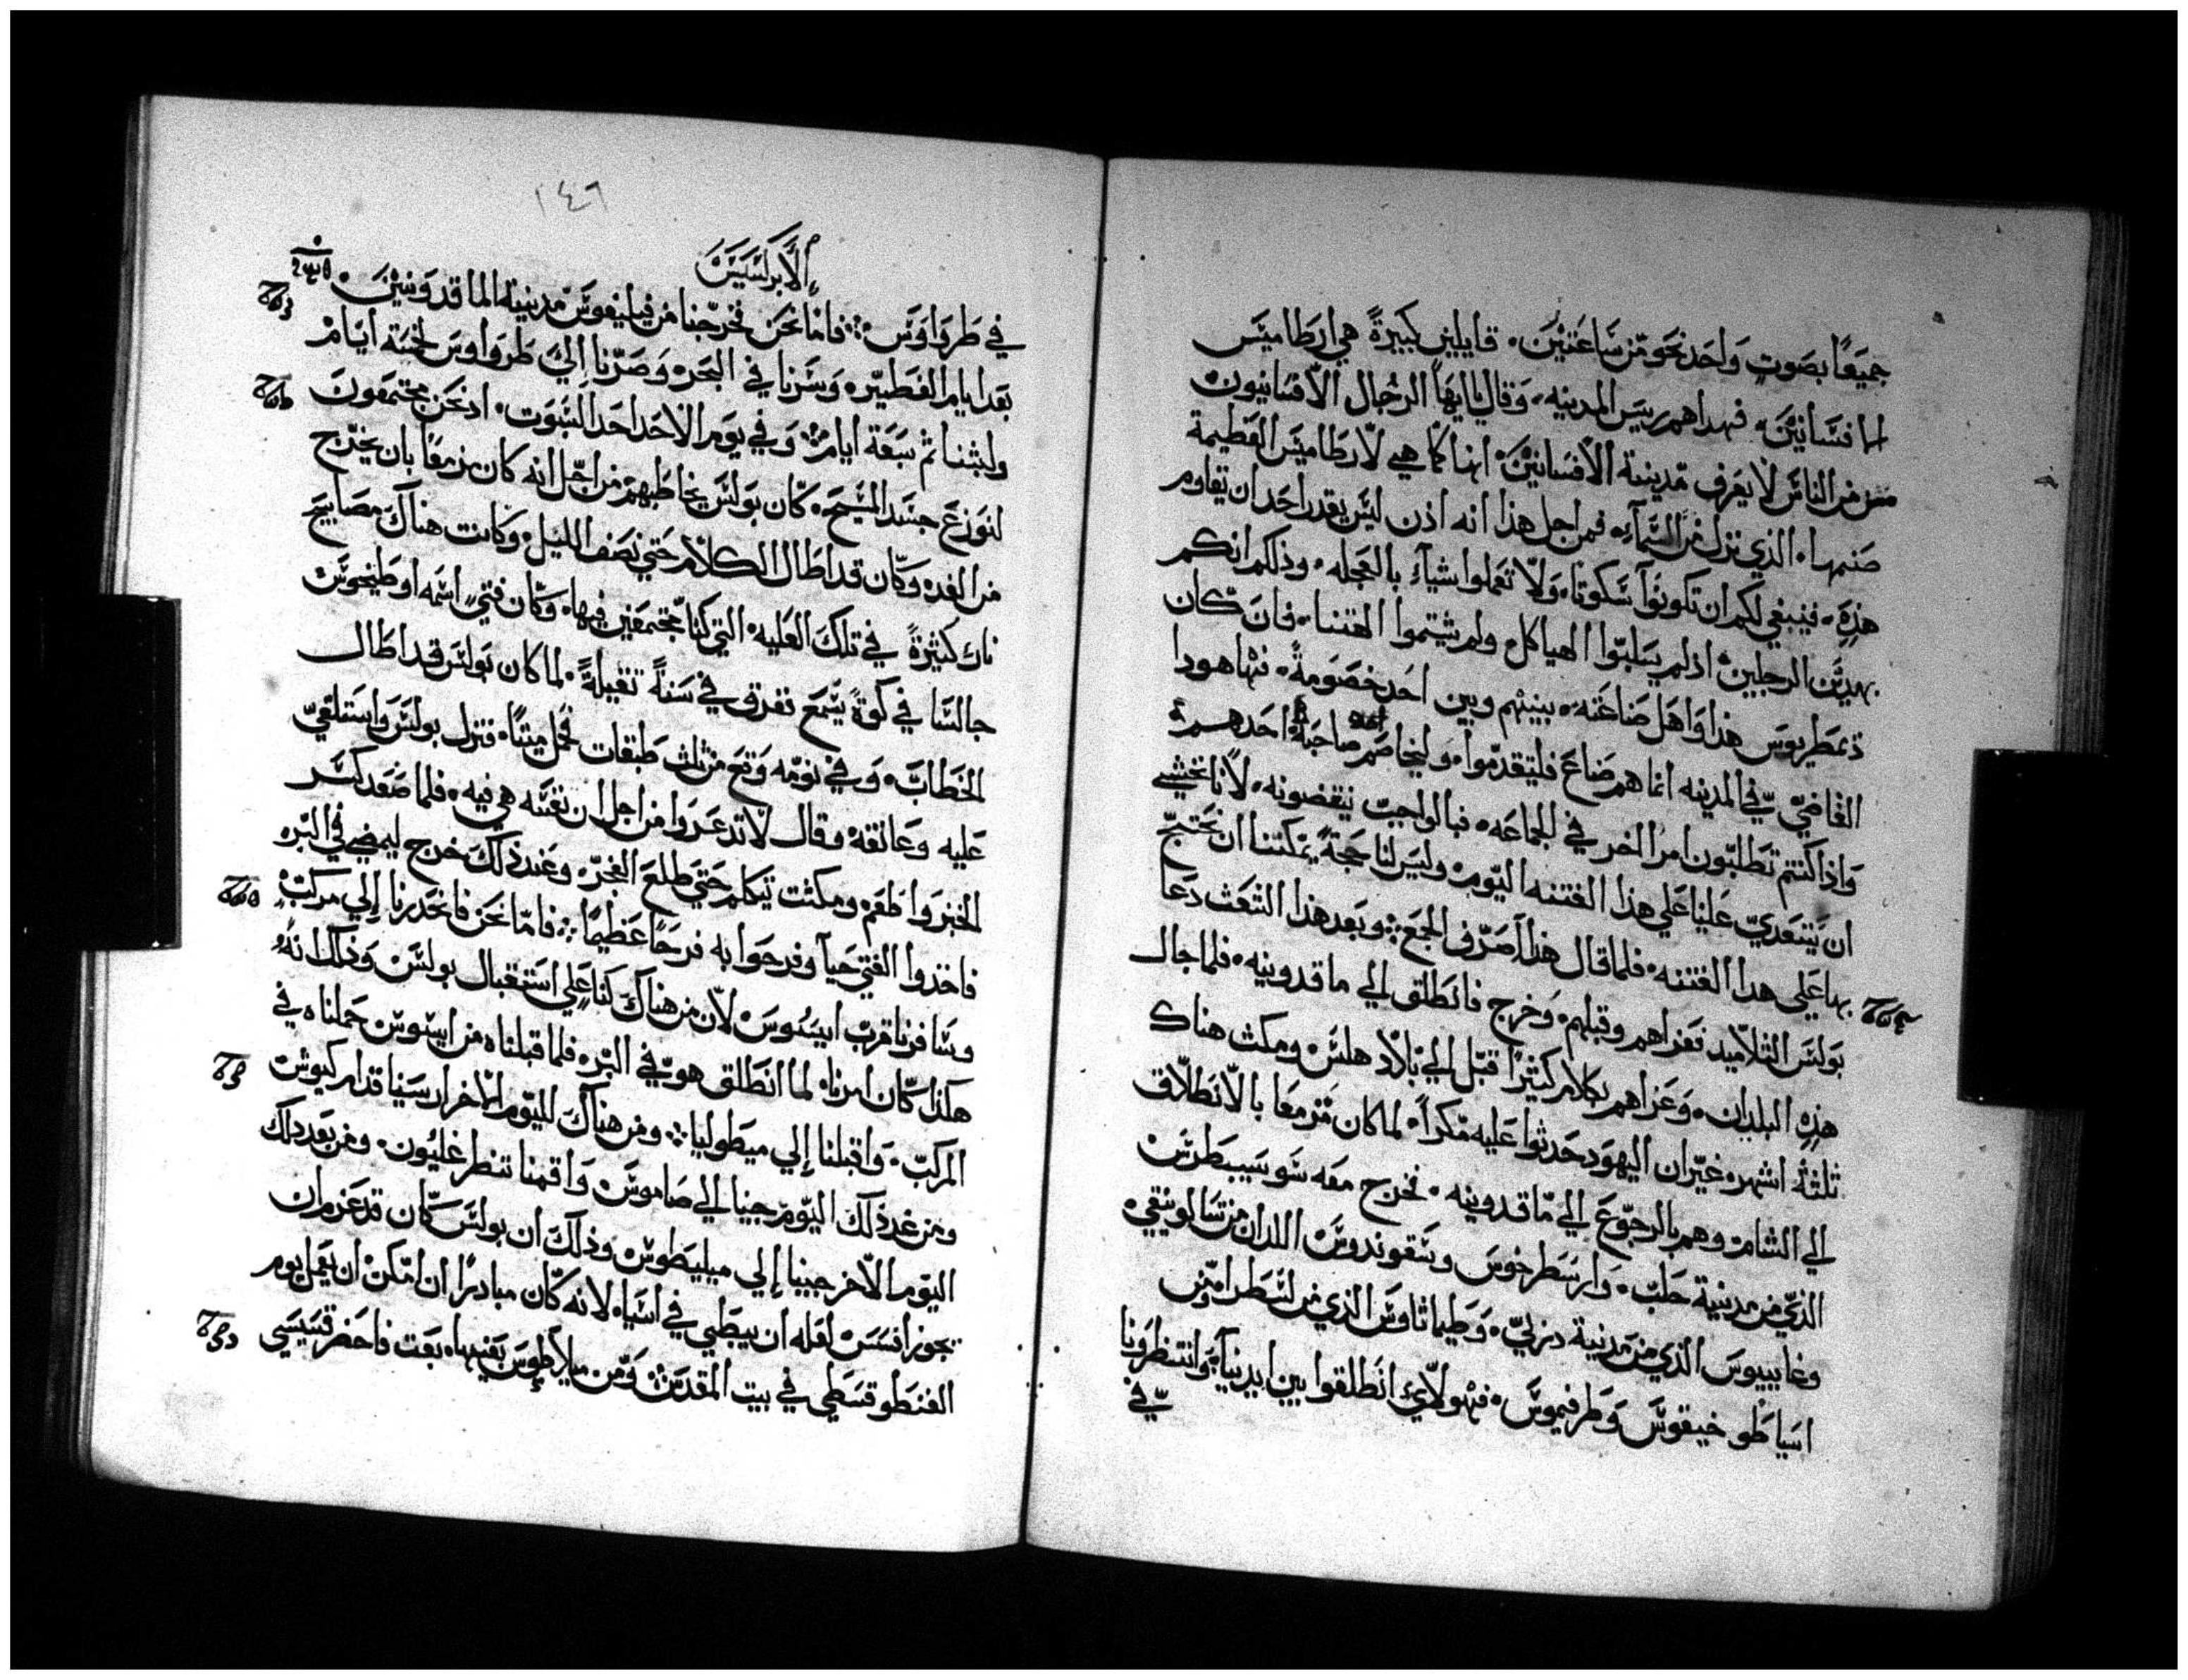 جميعًا بصوت واحد نحو من ساعتين، قايلين كبيرة هي ارطاميس
افسانيين، فهداهم ريس المدينه، وقال يايها الرجال الافسانيون
من من الناس لا يعرف مدينة الافسانيين، انها كما هي لارطاميس العظيمة
صنمها، الذي نزل من السماء، فمن اجل هذا انه اذن ليس يقدر احد ان يقاوم
هذه، فينبغي لكم ان تكونوا سكوتا، ولا تعملوا شياء بالعجله، وذلكم انكم
بهذين الرجلين، اذ لم يسلبوا الهياكل، ولم يشتموا الهتنا، فان كان
دمطريوس هذا واهل صناعته، بينهم وبين احد خصومة، فها هودا
القاضي في المدينه انما هم صناع فليتقدموا، وليخاصم صاحبه احدهم
واذا كنتم تطلبون امرا اخر في الجماعه، فبالواجب تقضونه، لانا نخشي
ان يتعدي علينا علي هذا الفتنه اليوم، وليس لنا حجة يمكننا ان نحتج
بها علي هدا الفتنه، فلما قال هذا صرف الجمع ؞ وبعد هذا الشعث دعا
بولس التلاميد فعزاهم وقبلهم، وخرج فانطلق الي ماقدونيه، فلما جال
هذه البلدان، وعزاهم بكلام كثيرًا قبل الي بلاد هلس، ومكث هناك
ثلثة اشهر، غير ان اليهود حدثوا عليه مكرا، لما كان مزمعا بالانطلاق
الي الشام، وهم بالرجوع الي ماقدونيه، فخرج معه سوسيبطرس
الذي من مدينة حلب، وارسطرخوس وسقوندوس اللدان من تسالونيقي،
وغاييوس الذي من مدينة دربي، وطيماثاوس الذي من لسطرا، ومن
اسيا طوخيقوس وطرفيموس، فهولاي انطلقوا بين ايدينا، وانتظرونا
في
١٤٦
الابركسيس
في طرواوس ؞ فاما نحن فخرجنا من فيليفوس مدينة الماقدونيين،
بعد ايام الفطير، وسرنا في البحر، وصرنا الي طرواوس لخمسة ايام
ولبثنا ثم سبعة ايام ؞ وفي يوم الاحد احد السبوت، اذ نحن مجتمعون
لنوزع جسد المسيح، كان بولس يخاطبهم من اجل انه كان مزمعا بان يخرج
من الغد، وكان قد اطال الكلام حتي نصف الليل، وكانت هناك مصابيح
نار كثيرة في تلك العليه، التي كنا مجتمعين فيها، وكان فتي اسمه اوطيخوس
جالسا في كوة يسمع تغرق في سنة ثقيلة، لما كان بولس قد اطال
الخطاب، وفي نومه وقع من ثلث طبقات فحمل ميتا، فنزل بولس واستلقي
عليه وعانقه، وقال لا تدعروا من اجل ان نفسه هي فيه، فلما صعد كسر
الخبز واطعم، ومكث يتكلم حتي طلع الفجر، وعند ذلك خرج ليمضي في البر،
فاخدوا الفتي حيا وفرحوا به فرحا عظيما ؞ فاما نحن فانحدرنا إلي مركب
وسافرنا قرب ايسوس لان من هناك كنا علي استقبال بولس، وذلك انه
هكذا كان امرنا، لما انطلق هو في البر، فلما قبلناه من ايسوس حملناه في
المركب، واقبلنا إلي ميطوليا ؞ ومن هناك لليوم الاخر ارسينا قدام كيوش
ومن غد ذلك اليوم جينا الي صاموس، واقمنا تنطرغليون، ومن بعد دلك
اليوم الاخر جينا إلي ميليطوس، وذلك ان بولس كان قد عزم ان
يجوز افسس لعله ان يبطي في اسيا، لانه كان مبادرا ان امكن ان يعمل يوم
الفنطوقسطي في بيت المقدس ؞ ومن ميلاطوس بعينها، بعت فاحضر قسيسي